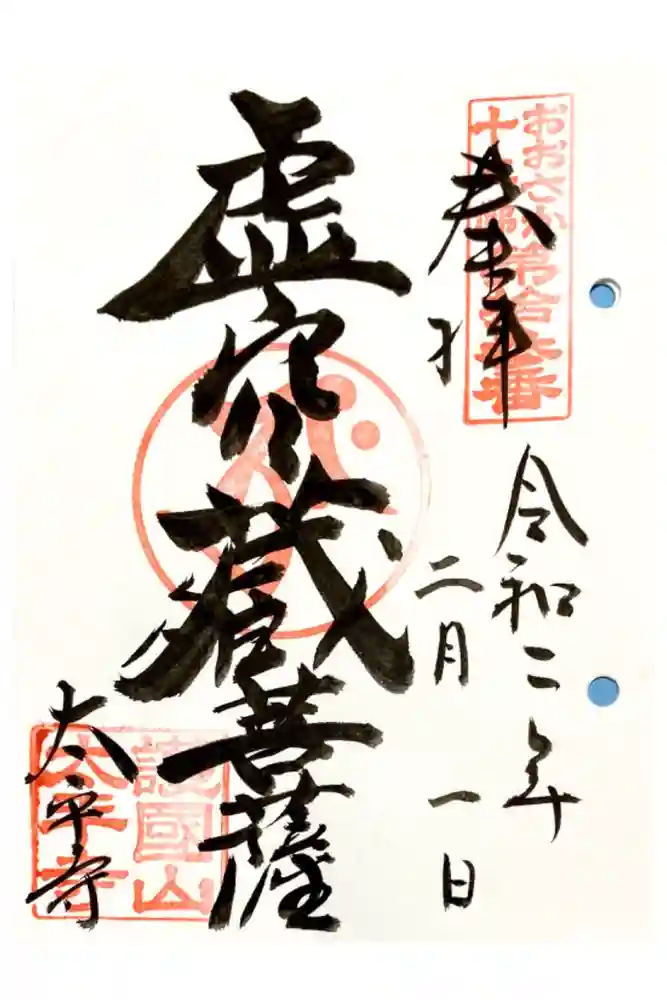 おおさか第拾六番
奉拝
令和二年
二月一日
虚空蔵菩薩
護國山
太平寺
太平寺